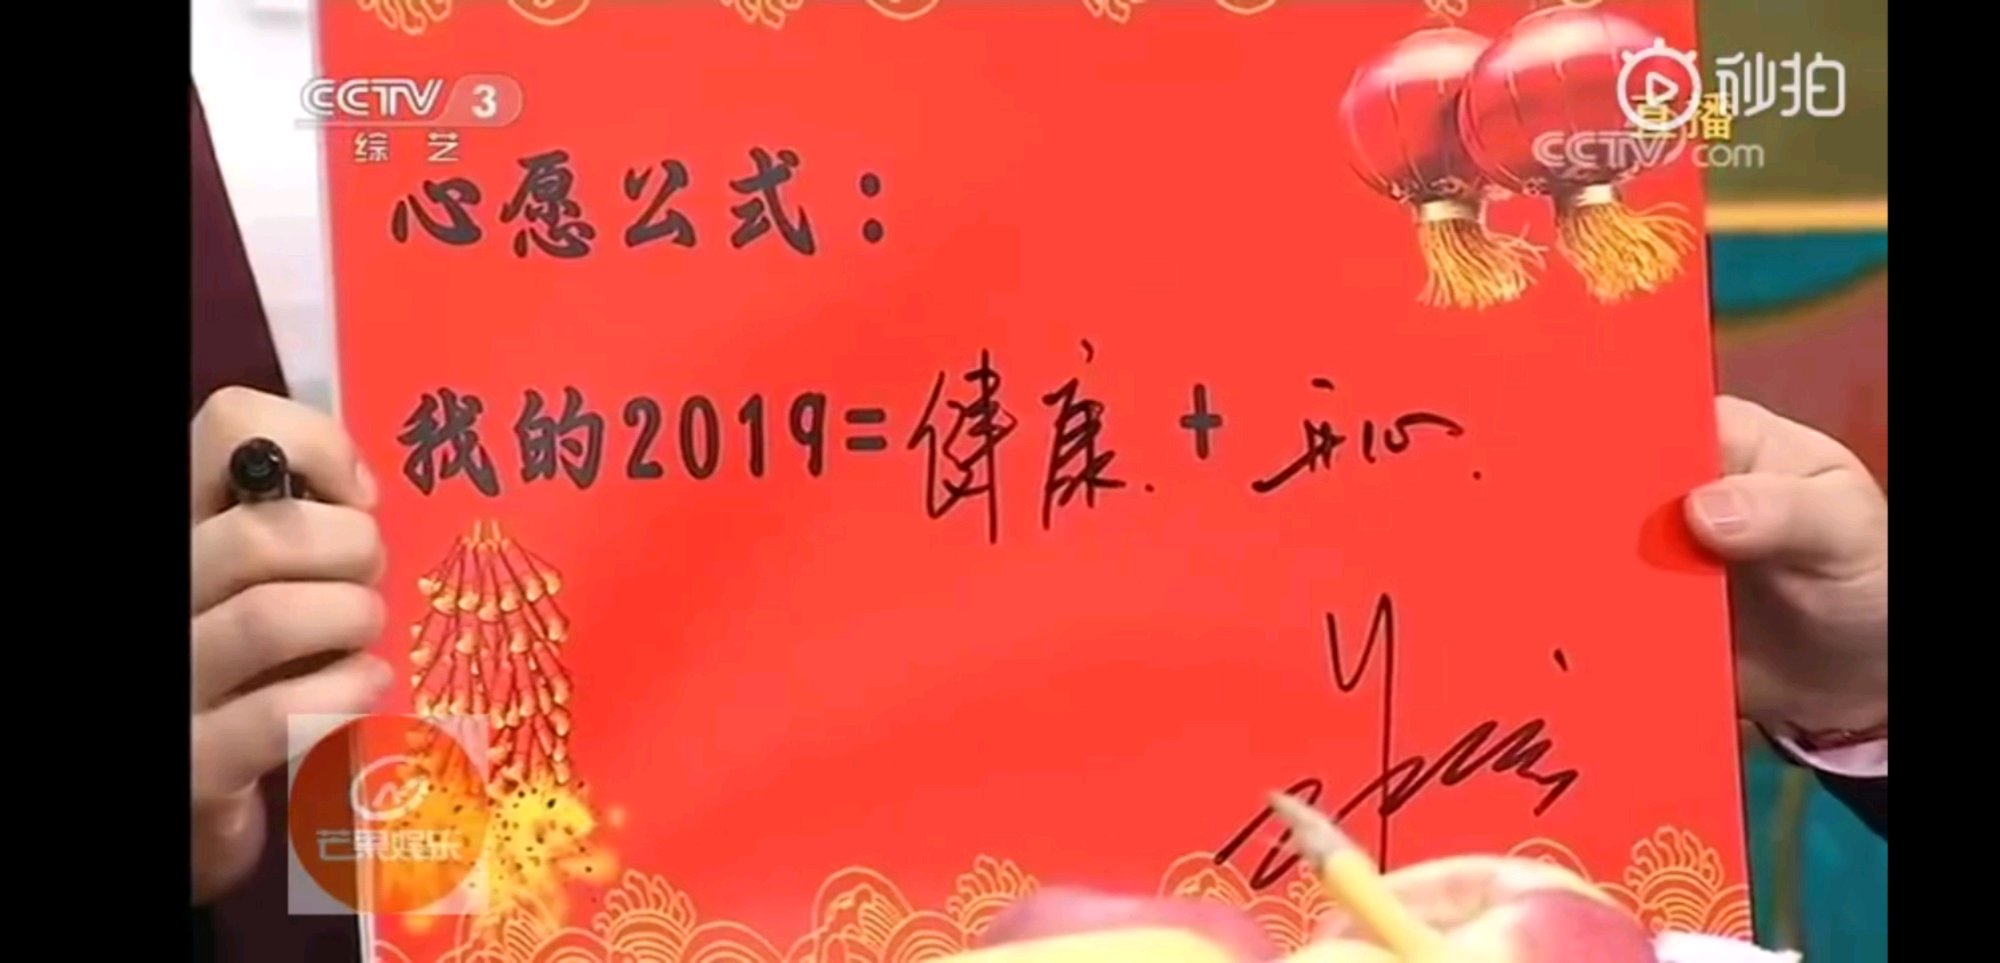 CCTV 3
综艺
秒拍
直播
CCTV.com
心愿公式：
我的2019=健康.+开心.
芒果娱乐